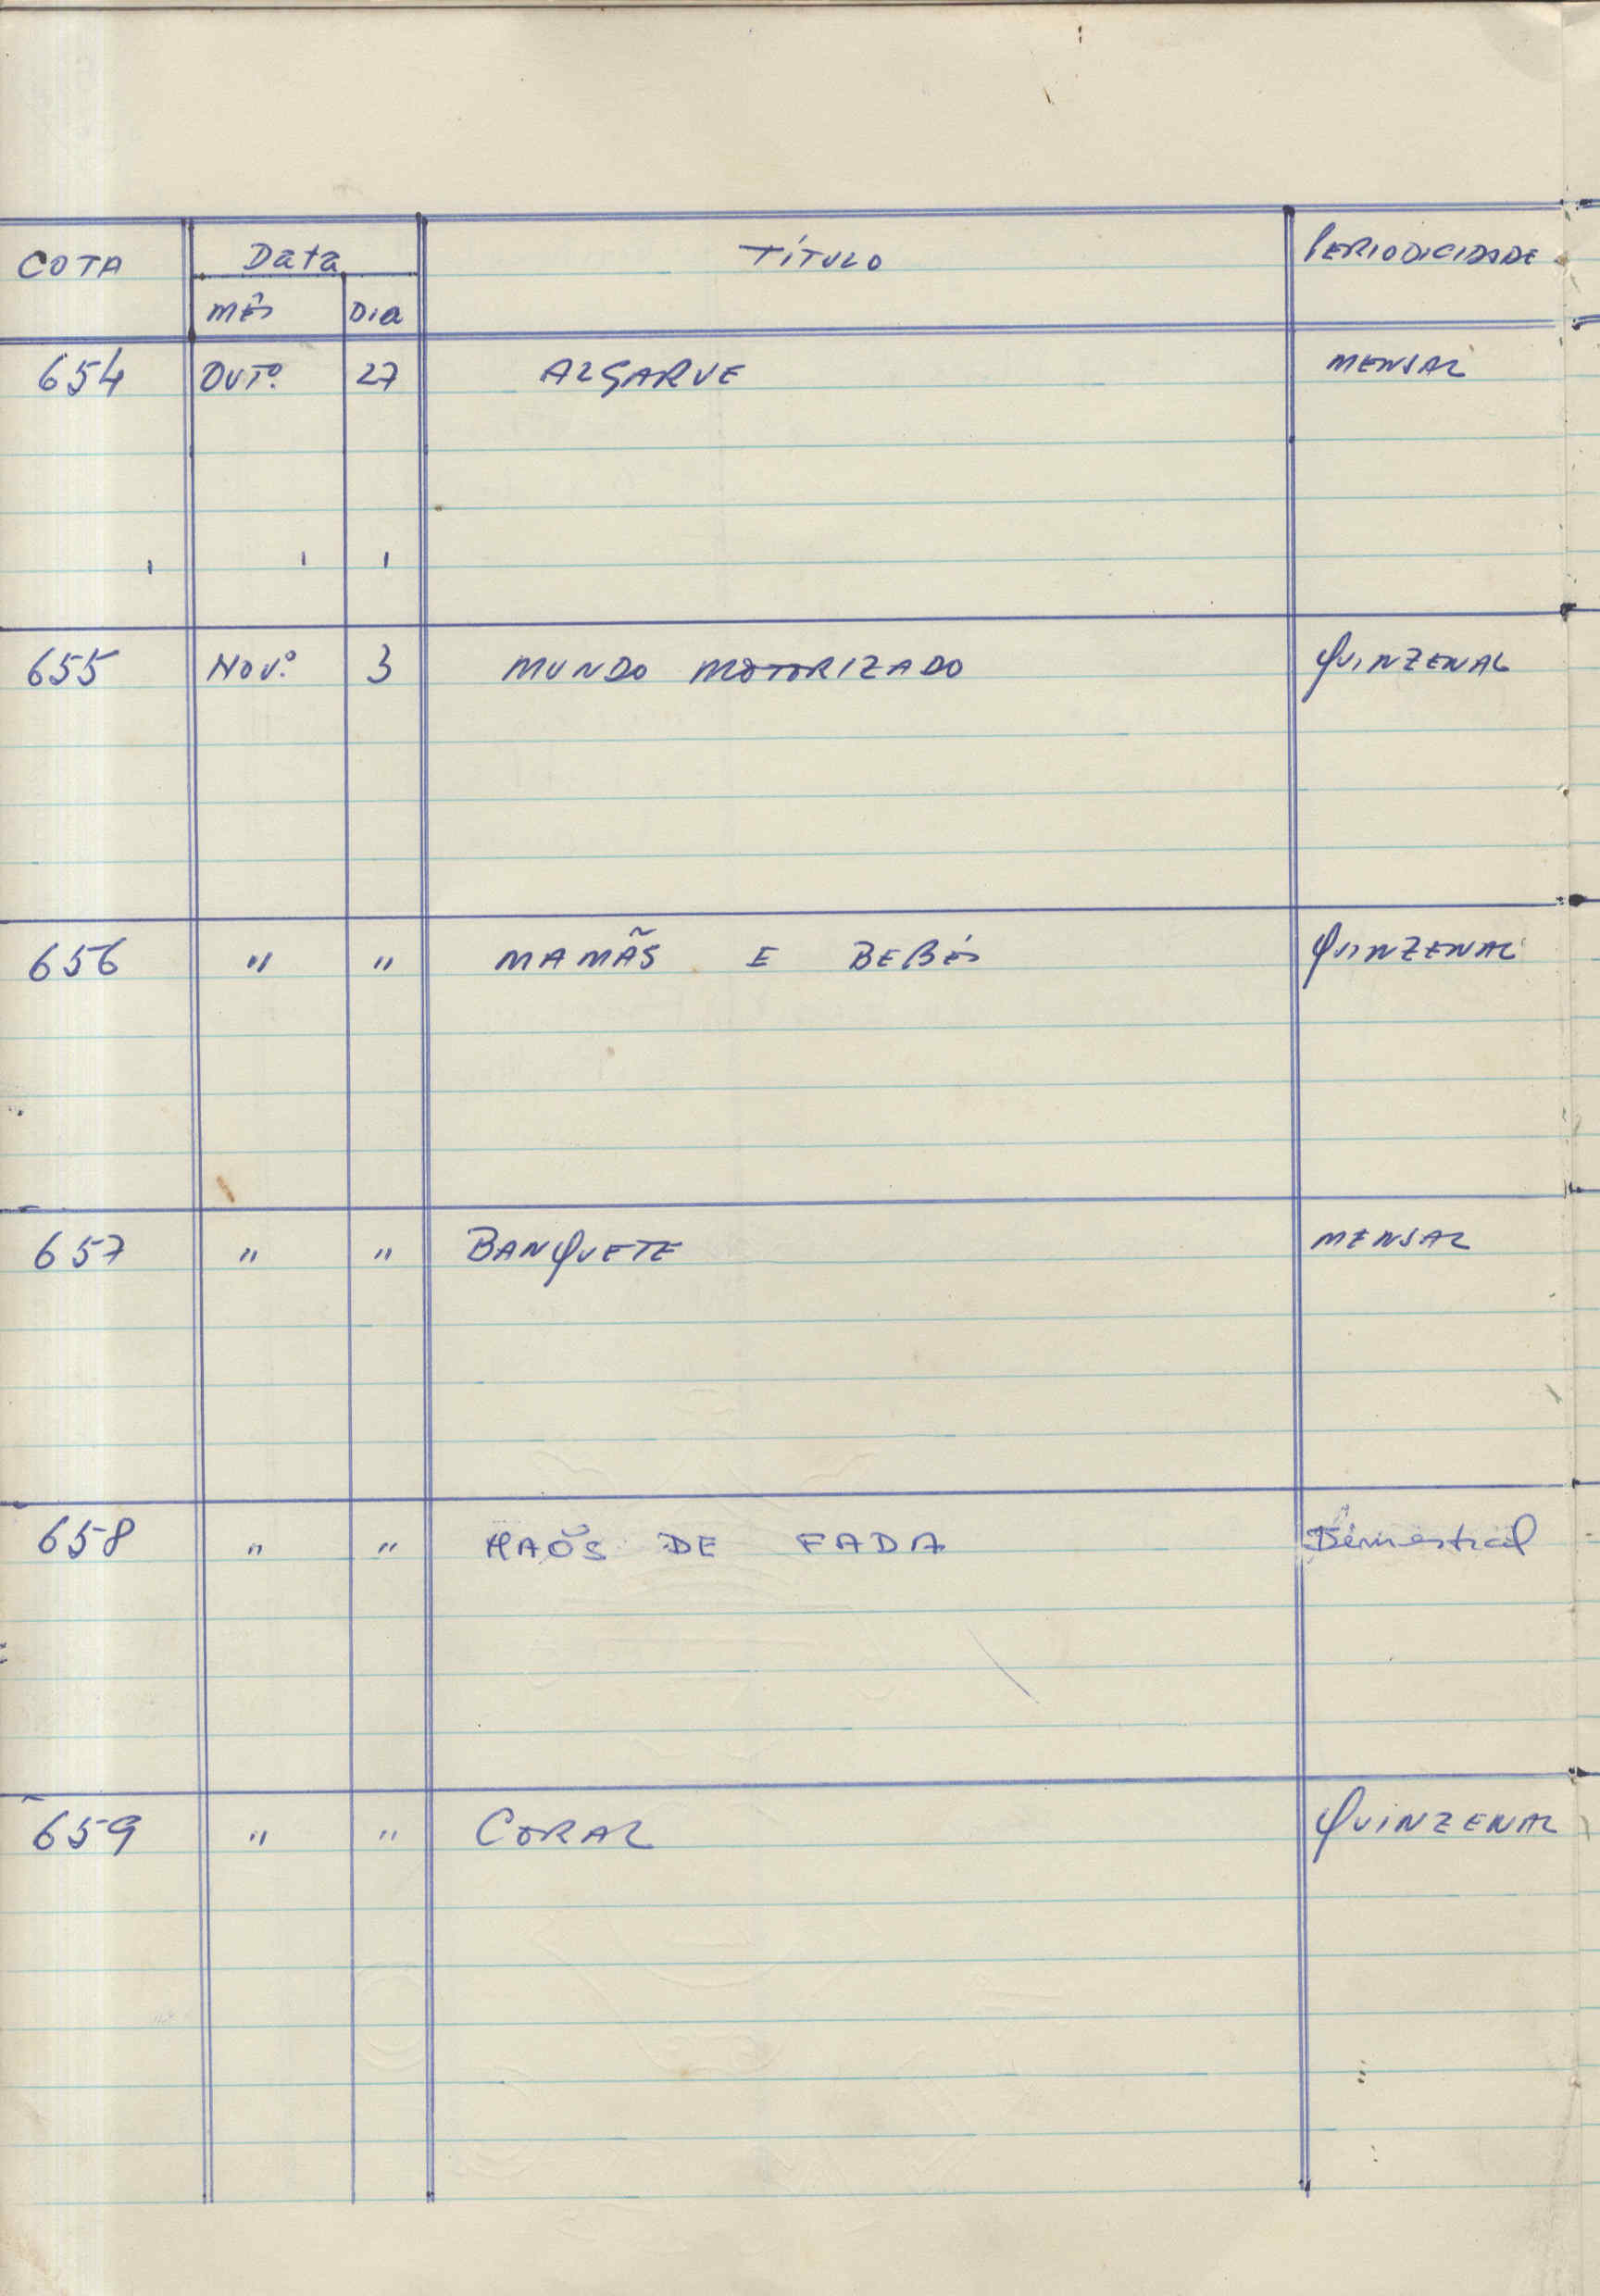 COTA Data TÍTULO PERIODICIDADE
MÊS DIA
654 OUTº. 27 ALGARVE MENSAL
655 NOV.º 3 MUNDO MOTORIZADO QUINZENAL
656 " " MAMÃS E BEBÉS QUINZENAL
657 " " BANQUETE MENSAL
658 " " MAÕS DE FADA Bimestral
659 " " CORAL QUINZENAL